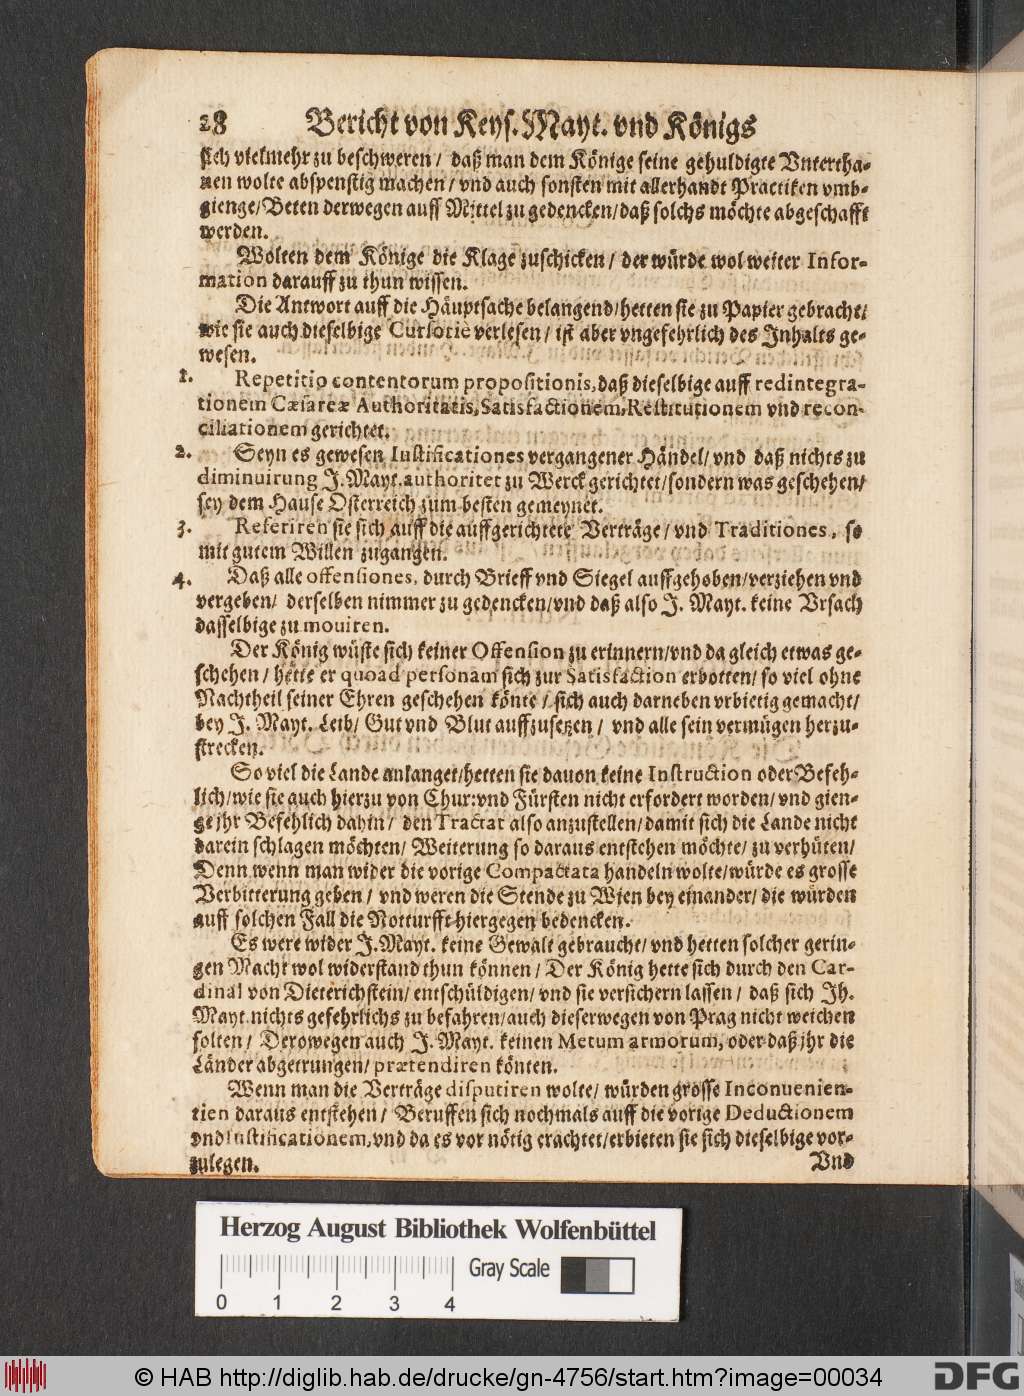 28 Bericht von Keys. Mayt. vnd Königs
sich vielmehr zu beschweren / daß man dem Könige seine gehuldigte Vntertha-
nen wolte abspenstig machen / vnd auch sonsten mit allerhandt Practiken vmb-
gienge / Beten derwegen auff Mittel zu gedencken / daß solchs möchte abgeschafft
werden.
Wolten dem Könige die Klage zuschicken / der würde wol weiter Infor-
mation darauff zu thun wissen.
Die Antwort auff die Häuptsache belangend / hetten sie zu Papier gebracht /
wie sie auch dieselbige Cursorie verlesen / ist aber vngefehrlich des Inhalts ge-
wesen.
1. Repetitio contentorum propositionis, daß dieselbige auff redintegra-
tionem Cæsareæ Authoritatis, Satisfactionem, Restitutionem vnd recon-
ciliationem gerichtet.
2. Seyn es gewesen Iustificationes vergangener Händel / vnd daß nichts zu
diminuirung J. Mayt. authoritet zu Werck gerichtet / sondern was geschehen /
sey dem Hause Osterreich zum besten gemeynet.
3. Referiren sie sich auff die auffgerichtete Verträge / vnd Traditiones, so
mit gutem Willen zugangen.
4. Daß alle offensiones, durch Brieff vnd Siegel auffgehoben / verziehen vnd
vergeben / derselben nimmer zu gedencken / vnd daß also J. Mayt. keine Vrsach
dasselbige zu mouiren.
Der König wüste sich keiner Offension zu erinnern / vnd da gleich etwas ge-
schehen / hette er quoad personam sich zur Satisfaction erbotten / so viel ohne
Nachtheil seiner Ehren geschehen könte / sich auch darneben vrbietig gemacht /
bey J. Mayt. Leib / Gut vnd Blut auffzusetzen / vnd alle sein vermügen herzu-
strecken.
So viel die Lande anlanget / hetten sie dauon keine Instruction oder Befeh-
lich / wie sie auch hierzu von Chur: vnd Fürsten nicht erfordert worden / vnd gien-
ge jhr Befehlich dahin / den Tractat also anzustellen / damit sich die Lande nicht
darein schlagen möchten / Weiterung so daraus entstehen möchte / zu verhüten /
Denn wenn man wider die vorige Compactata handeln wolte / würde es grosse
Verbitterung geben / vnd weren die Stende zu Wien bey einander / die würden
auff solchen Fall die Notturfft hiergegen bedencken.
Es were wider J. Mayt. keine Gewalt gebraucht / vnd hetten solcher gerin-
gen Macht wol widerstand thun können / Der König hette sich durch den Car-
dinal von Dieterichstein / entschüldigen / vnd sie versichern lassen / daß sich Jh.
Mayt. nichts gefehrlichs zu befahren / auch dieserwegen von Prag nicht weichen
solten / Derowegen auch J. Mayt. keinen Metum armorum, oder daß jhr die
Länder abgetrungen / prætendiren könten.
Wenn man die Verträge disputiren wolte / würden grosse Inconuenien-
tien daraus entstehen / Beruffen sich nochmals auff die vorige Deductionem
vnd Iustificationem, vnd da es vor nötig erachtet / erbieten sie sich dieselbige vor-
zulegen.
Vnd
Herzog August Bibliothek Wolfenbüttel
Gray Scale
0 1 2 3 4
© HAB http://diglib.hab.de/drucke/gn-4756/start.htm?image=00034
DFG